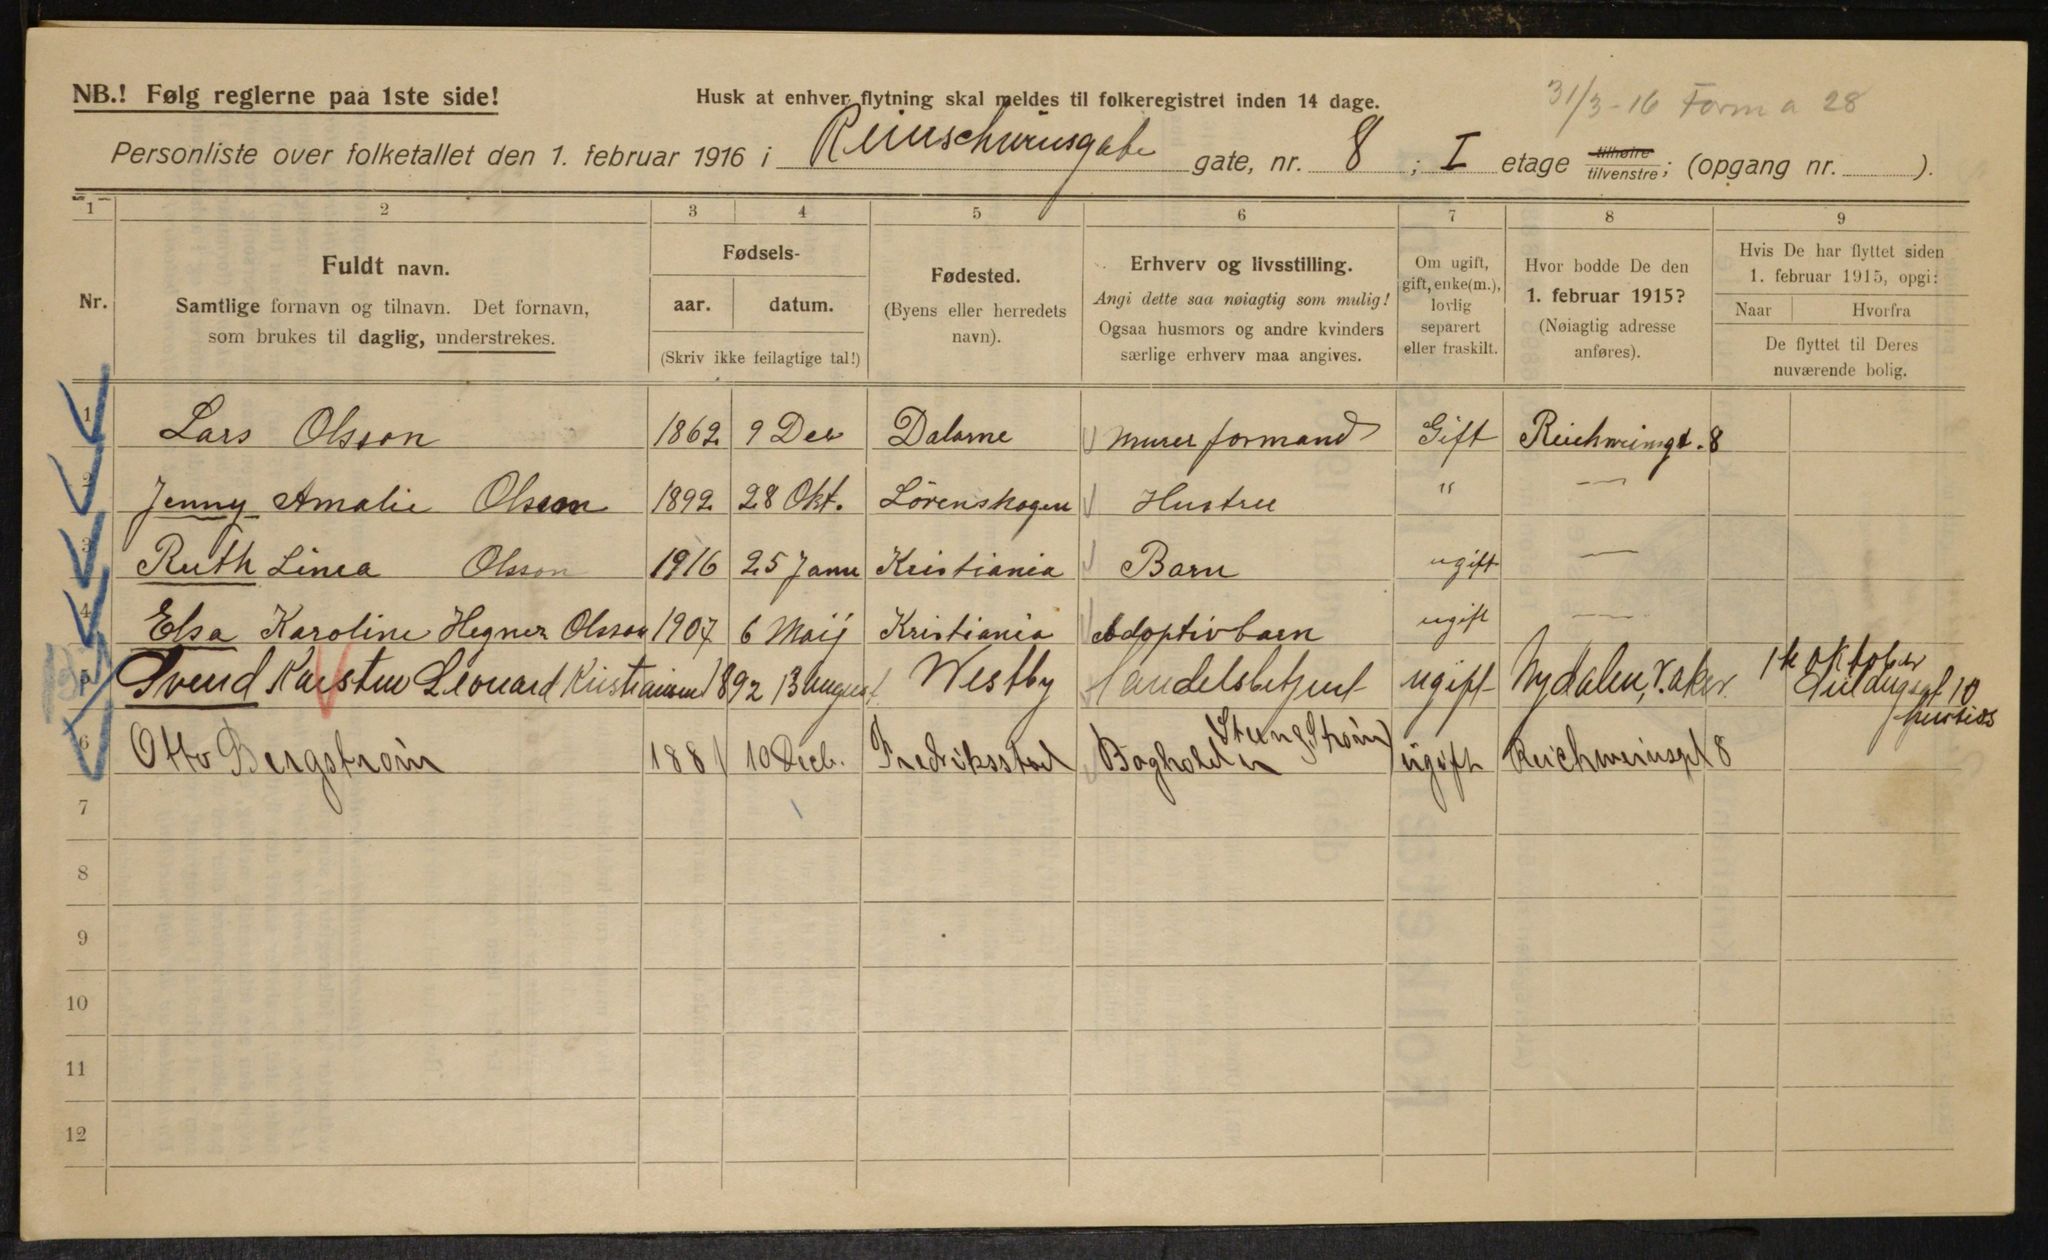 NB.! Følg reglerne paa 1ste side!
Husk at enhver flytning skal meldes til folkeregistret inden 14 dage.
31/3-16 Form a 28
Personliste over folketallet den 1. februar 1916 i gate, nr. 8 ; I etage tilhøire tilvenstre; (opgang nr. ).
1 2 3 4 5 6 7 8 9
Nr.
Fuldt navn.
Samtlige fornavn og tilnavn. Det fornavn,
som brukes til daglig, understrekes.
Fødsels-
aar. datum.
(Skriv ikke feilagtige tal!)
Fødested.
(Byens eller herredets
navn).
Erhverv og livsstilling.
Angi dette saa nøiagtig som mulig!
Ogsaa husmors og andre kvinders
særlige erhverv maa angives.
Om ugift,
gift, enke(m.),
lovlig
separert
eller fraskilt.
Hvor bodde De den
1. februar 1915?
(Nøiagtig adresse
anføres).
Hvis De har flyttet siden
1. februar 1915, opgi:
Naar Hvorfra
De flyttet til Deres
nuværende bolig.
1 Lars Olsson 1862 9 Dec Dalarne Murer formand Gift 8
2 Jenny Amalie Olsson 1892 28 Okt. Lörenskogen Hustru " —
3 Ruth Linea Olsson 1916 25 Janu Kristiania Barn ugift —
4 Elsa Karoline Hegner Olsson 1907 6 Maij Kristiania Adoptivbarn ugift —
5 Svend Karsten Leonard Kristiansen 1892 13 august Westby Handelsbetjent ugift Nydalen, V. aker 1ste oktober 10
6 Otto Bergstrøm 1881 10 Decb. Fredriksstad Bogholder ugift Reichweinsgt 8
7
8
9
10
11
12